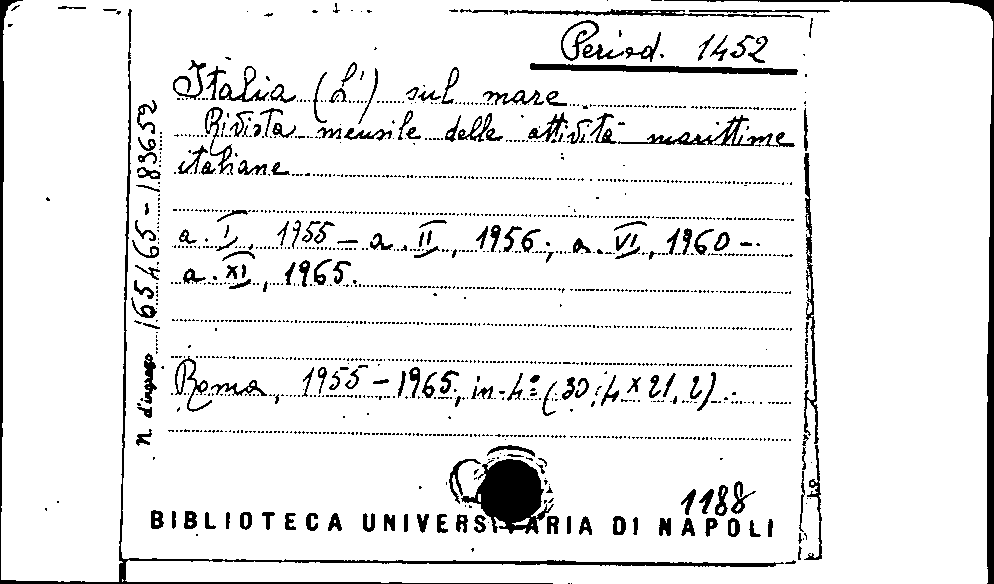 Period. 1452
Italia (L') sul mare
Rivista mensile delle attività marittime
italiane
a. I, 1955 – a. II, 1956; a. VI, 1960 –
a. XI, 1965.
Roma, 1955 – 1965, in-4º (30,4 × 21,2).
N. d'ingresso 165465 - 183652
1188
BIBLIOTECA UNIVERSITARIA DI NAPOLI